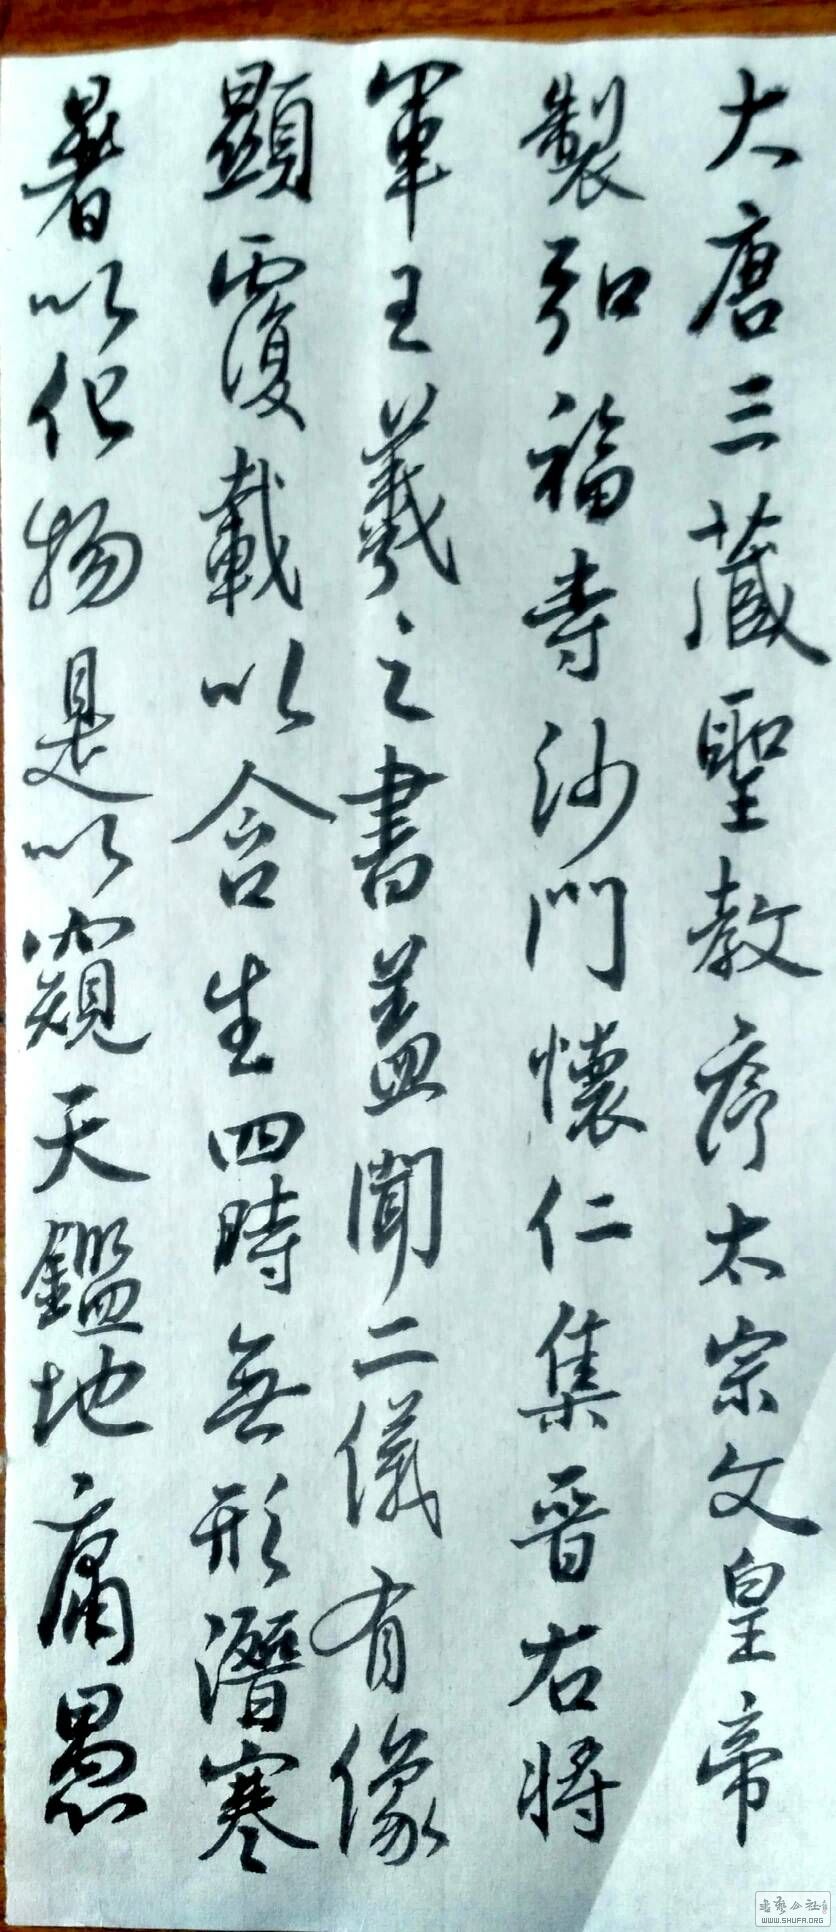 大唐三藏聖教序太宗文皇帝
製弘福寺沙門懷仁集晉右將
軍王羲之書蓋聞二儀有像
顯覆載以含生四時無形潛寒
暑以化物是以窺天鑑地庸愚
書藝公社
WWW.SHUFA.ORG